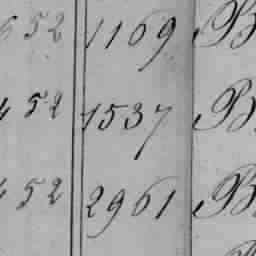 52 1169 B
52 1537 B
52 2961 B